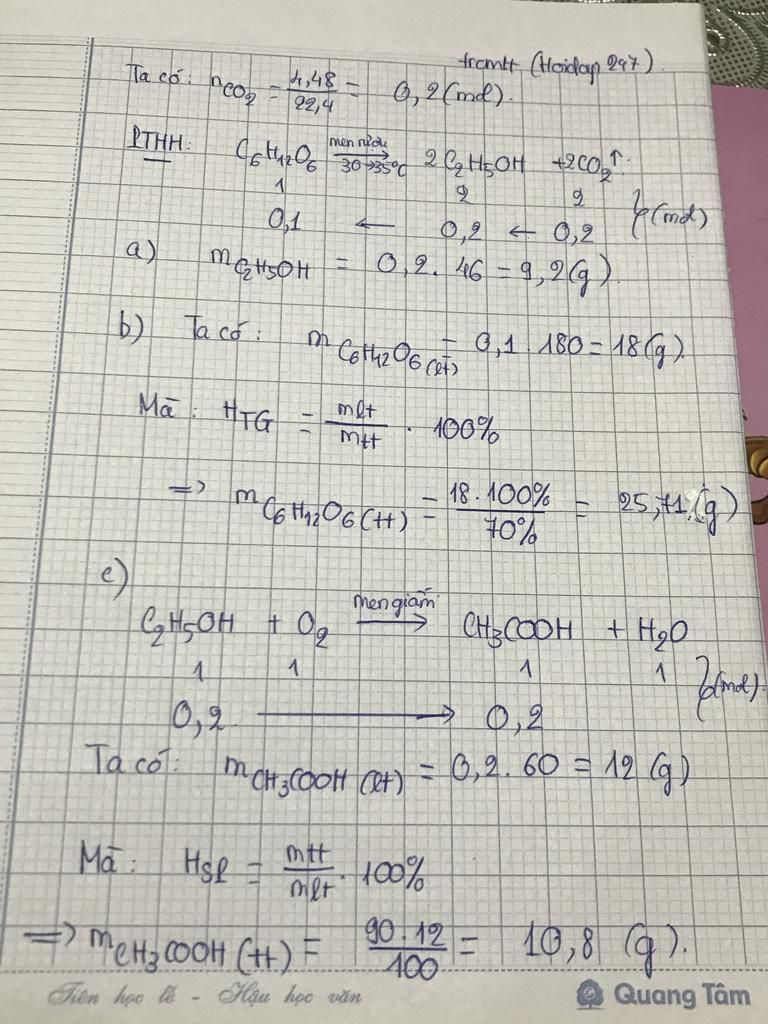 tramtt (Hoidap 247).
Ta có: nCO2 = 4,48/22,4 = 0,2 (mol).
PTHH: C6H12O6 men rượu→ 30→35°C 2C2H5OH + 2CO2↑
1 2 2
0,1 ← 0,2 ← 0,2 } (mol)
a) mC2H5OH = 0,2 . 46 = 9,2 (g)
b) Ta có: mC6H12O6 (lt) = 0,1 . 180 = 18 (g).
Mà: HTG = mlt/mtt . 100%
=> mC6H12O6 (tt) = 18 . 100%/70% = 25,71 (g)
c)
C2H5OH + O2 men giấm→ CH3COOH + H2O
1 1 1 1
0,2 → 0,2 } (mol)
Ta có: mCH3COOH (lt) = 0,2 . 60 = 12 (g)
Mà: HSP = mtt/mlt . 100%
=> mCH3COOH (tt) = 90 . 12/100 = 10,8 (g).
Tiên học lễ - Hậu học văn Quang Tâm